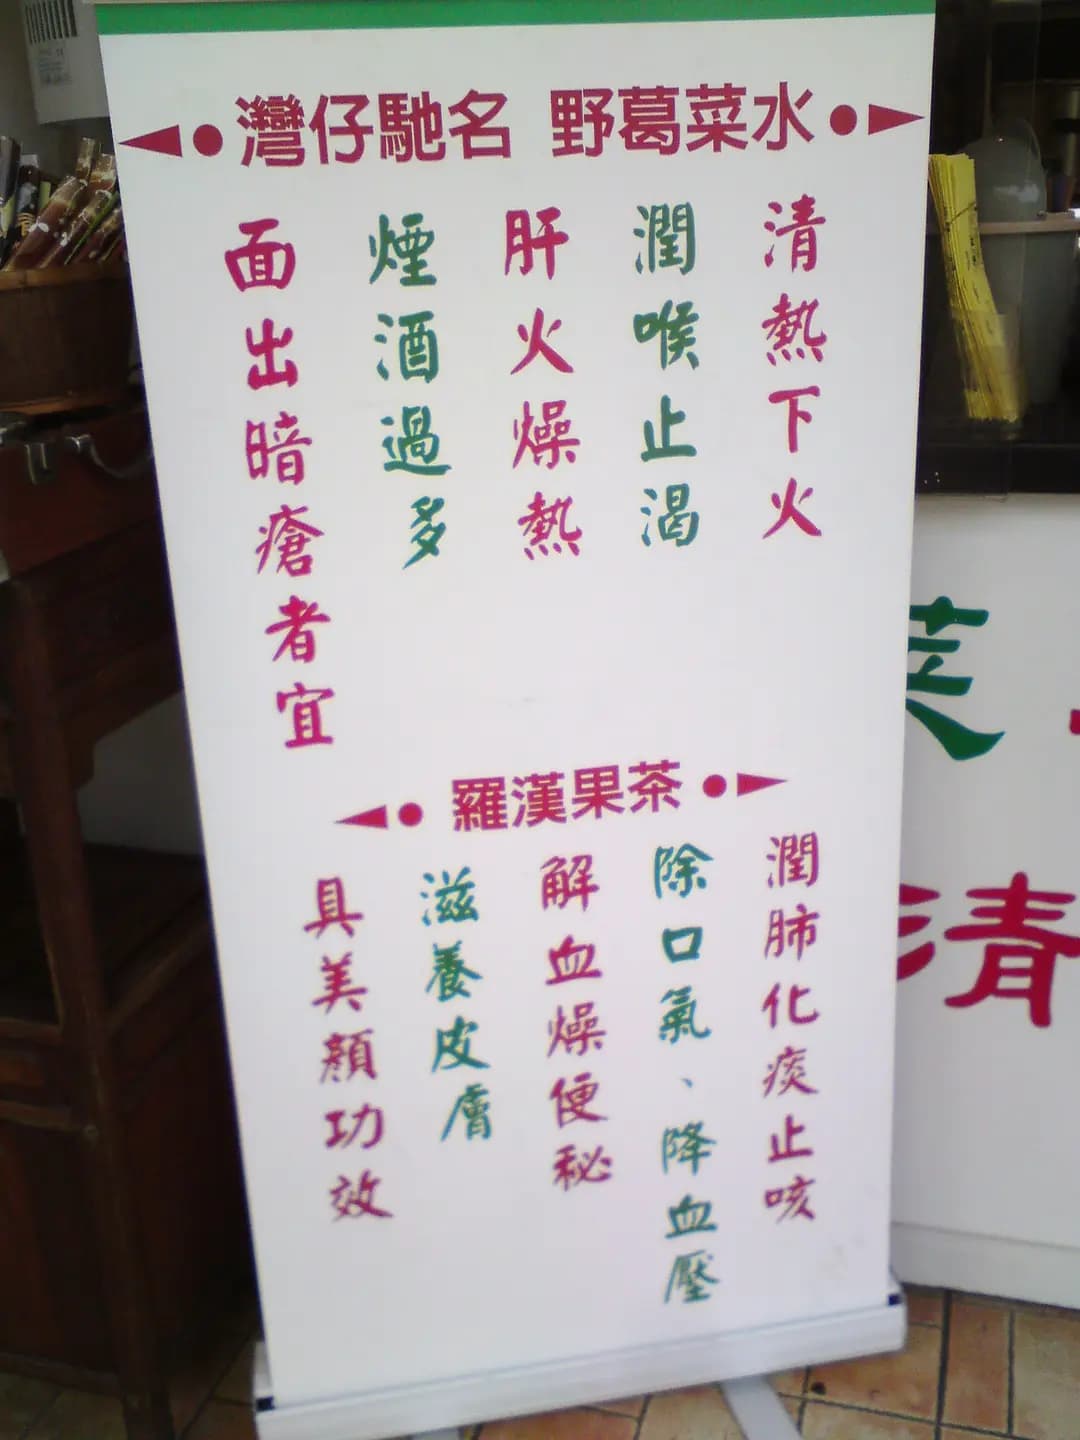 灣仔馳名 野葛菜水
清熱下火
潤喉止渴
肝火燥熱
煙酒過多
面出暗瘡者宜
羅漢果茶
潤肺化痰止咳
除口氣、降血壓
解血燥便秘
滋養皮膚
具美顏功效
菜
清